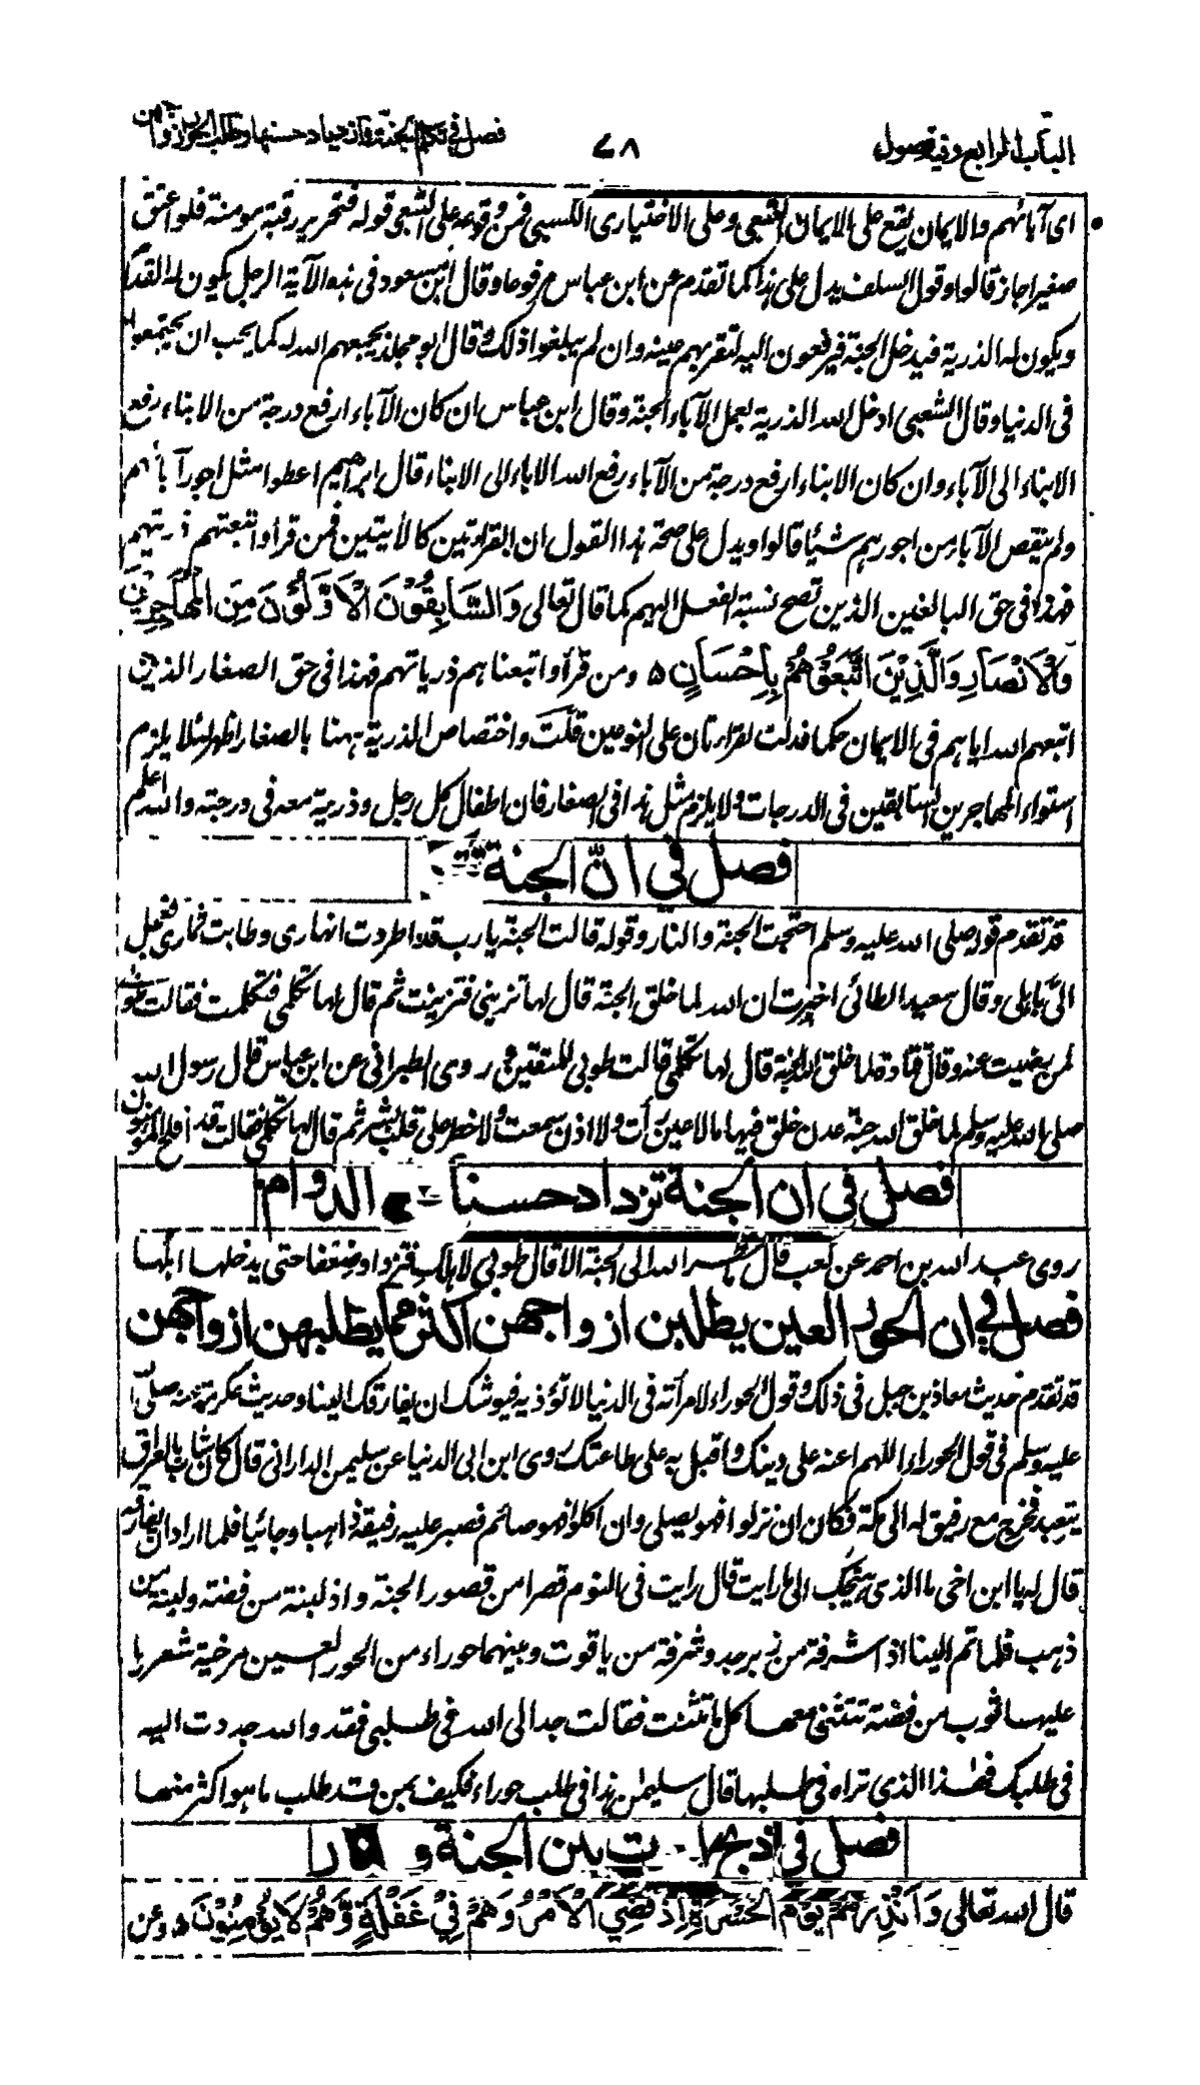 الباب الرابع وفيه فصول
٧٨
فصل في تكلم الجنة وازدياد حسنها وطلب الحور ازواجهن
اى آبائهم والايمان يقع على الايمان التبعي وعلى الاختيارى الكسبي فمن وقوعه على التبعي قوله فتحرير رقبة مومنة فلو اعتق
صغيرا جاز قالوا وقول السلف يدل على هذا كما تقدم عن ابن عباس مرفوعا وقال ابن مسعود فى هذه الآية الرجل يكون له القدم
ويكون له الذرية فيدخل الجنة فيرفعون اليه لتقر بهم عينه وان لم يبلغوا ذلك وقال ابو مجلز يجمعهم الله له كما يحب ان يجتمعوا
فى الدنيا وقال الشعبى ادخل الله الذرية بعمل الآباء الجنة وقال ابن عباس ان كان الآباء ارفع درجة من الابناء رفع
الابناء الى الآباء وان كان الابناء ارفع درجة من الآباء رفع الله الاباء الى الابناء قال ابراهيم اعطوا مثل اجور آبائهم
ولم ينقص الآباء من اجورهم شيئا قالوا ويدل على صحة هذا القول ان القراءتين كالأيتين فمن قرأ واتبعتهم ذريتهم
فهذا فى حق البالغين الذين تصح نسبة الفعل اليهم كما قال تعالى وَالسَّابِقُوْنَ الْاَوَّلُوْنَ مِنَ الْمُهَاجِرِيْنَ
وَالْاَنْصَارِ وَالَّذِيْنَ اتَّبَعُوْهُمْ بِاِحْسَانٍ ۵ ومن قرأ واتبعناهم ذرياتهم فهذا فى حق الصغار الذين
اتبعهم الله اياهم فى الايمان حكما فدلت القراءتان على النوعين قلت واختصاص الذرية ههنا بالصغار اظهر لئلا يلزم
استواء المهاجرين السابقين فى الدرجات ولا يلزم مثل هذا فى الصغار فان اطفال كل رجل وذرية معه فى درجته والله اعلم
فصل في انّ الجنة
قد تقدم قوله صلى الله عليه وسلم احتجت الجنة والنار وقوله قالت الجنة يارب قد اطردت انهارى وطابت ثمارى فعجل
الىّ باهلى وقال سعيد الطائى اخبرت ان الله لما خلق الجنة قال لها تزينى فتزينت ثم قال لها تكلمى فتكلمت فقالت طوبى
لمن رضيت عنه وقال قتادة لما خلق الله الجنة قال لها تكلمى قالت طوبى للمتقين روى الطبرانى عن ابن عباس قال رسول الله
صلى الله عليه وسلم لما خلق الله جنة عدن خلق فيها مالا عين رأت ولا اذن سمعت ولا خطر على قلب بشر ثم قال لها تكلمى فقالت قد افلح المؤمنون
فصل في ان الجنة تزداد حسنا الدوام
روى عبد الله بن احمد عن كعب قال ما نظر الله الى الجنة الا قال طوبى لاهلك فتزداد ضعفا حتى يدخلها اهلها
فصل في ان الحور العين يطلبن ازواجهن اكثر مما يطلبهن ازواجهن
قد تقدم حديث معاذ بن جبل فى ذلك وقول الحوراء لامرأته فى الدنيا لا تؤذيه فيوشك ان يفارقك الينا وحديث عكرمة عنه صلى
عليه وسلم فى قول الحوراء اللهم اعنه على دينك واقبل به على طاعتك روى ابن ابى الدنيا عن سليمن الدارانى قال كان شاب بالعراق
يتعبد فخرج مع رفيق له الى مكة فكان ان نزلوا فهو يصلى وان اكلوا فهو صائم فصبر عليه رفيقه ذاهبا وجائيا فلما اراد ان يفارقه
قال له يا ابن اخى ما الذى هيجك الى ما رايت قال رايت فى النوم قصرا من قصور الجنة واذ لبنة من فضة ولبنة من
ذهب فلما تم البنا اذا شرفة من زبرجد وشرفة من ياقوت وبينهما حوراء من الحور العين مرخية شعرها
عليها ثوب من فضة تتثنى معها كل ما تثنت فقالت جد الى الله فى طلبى فقد والله جددت اليه
فى طلبك فهذا الذى تراه فى طلبها قال سليمن هذا فى طلب حوراء فكيف بمن قد طلب ما هو اكثر منها
فصل في ذبح بين الجنة و
قال الله تعالى وَاَنْذِرْهُمْ يَوْمَ الْحَسْرَةِ اِذْ قُضِيَ الْاَمْرُ وَهُمْ فِيْ غَفْلَةٍ وَّهُمْ لَا يُؤْمِنُوْنَ ۵ وعن